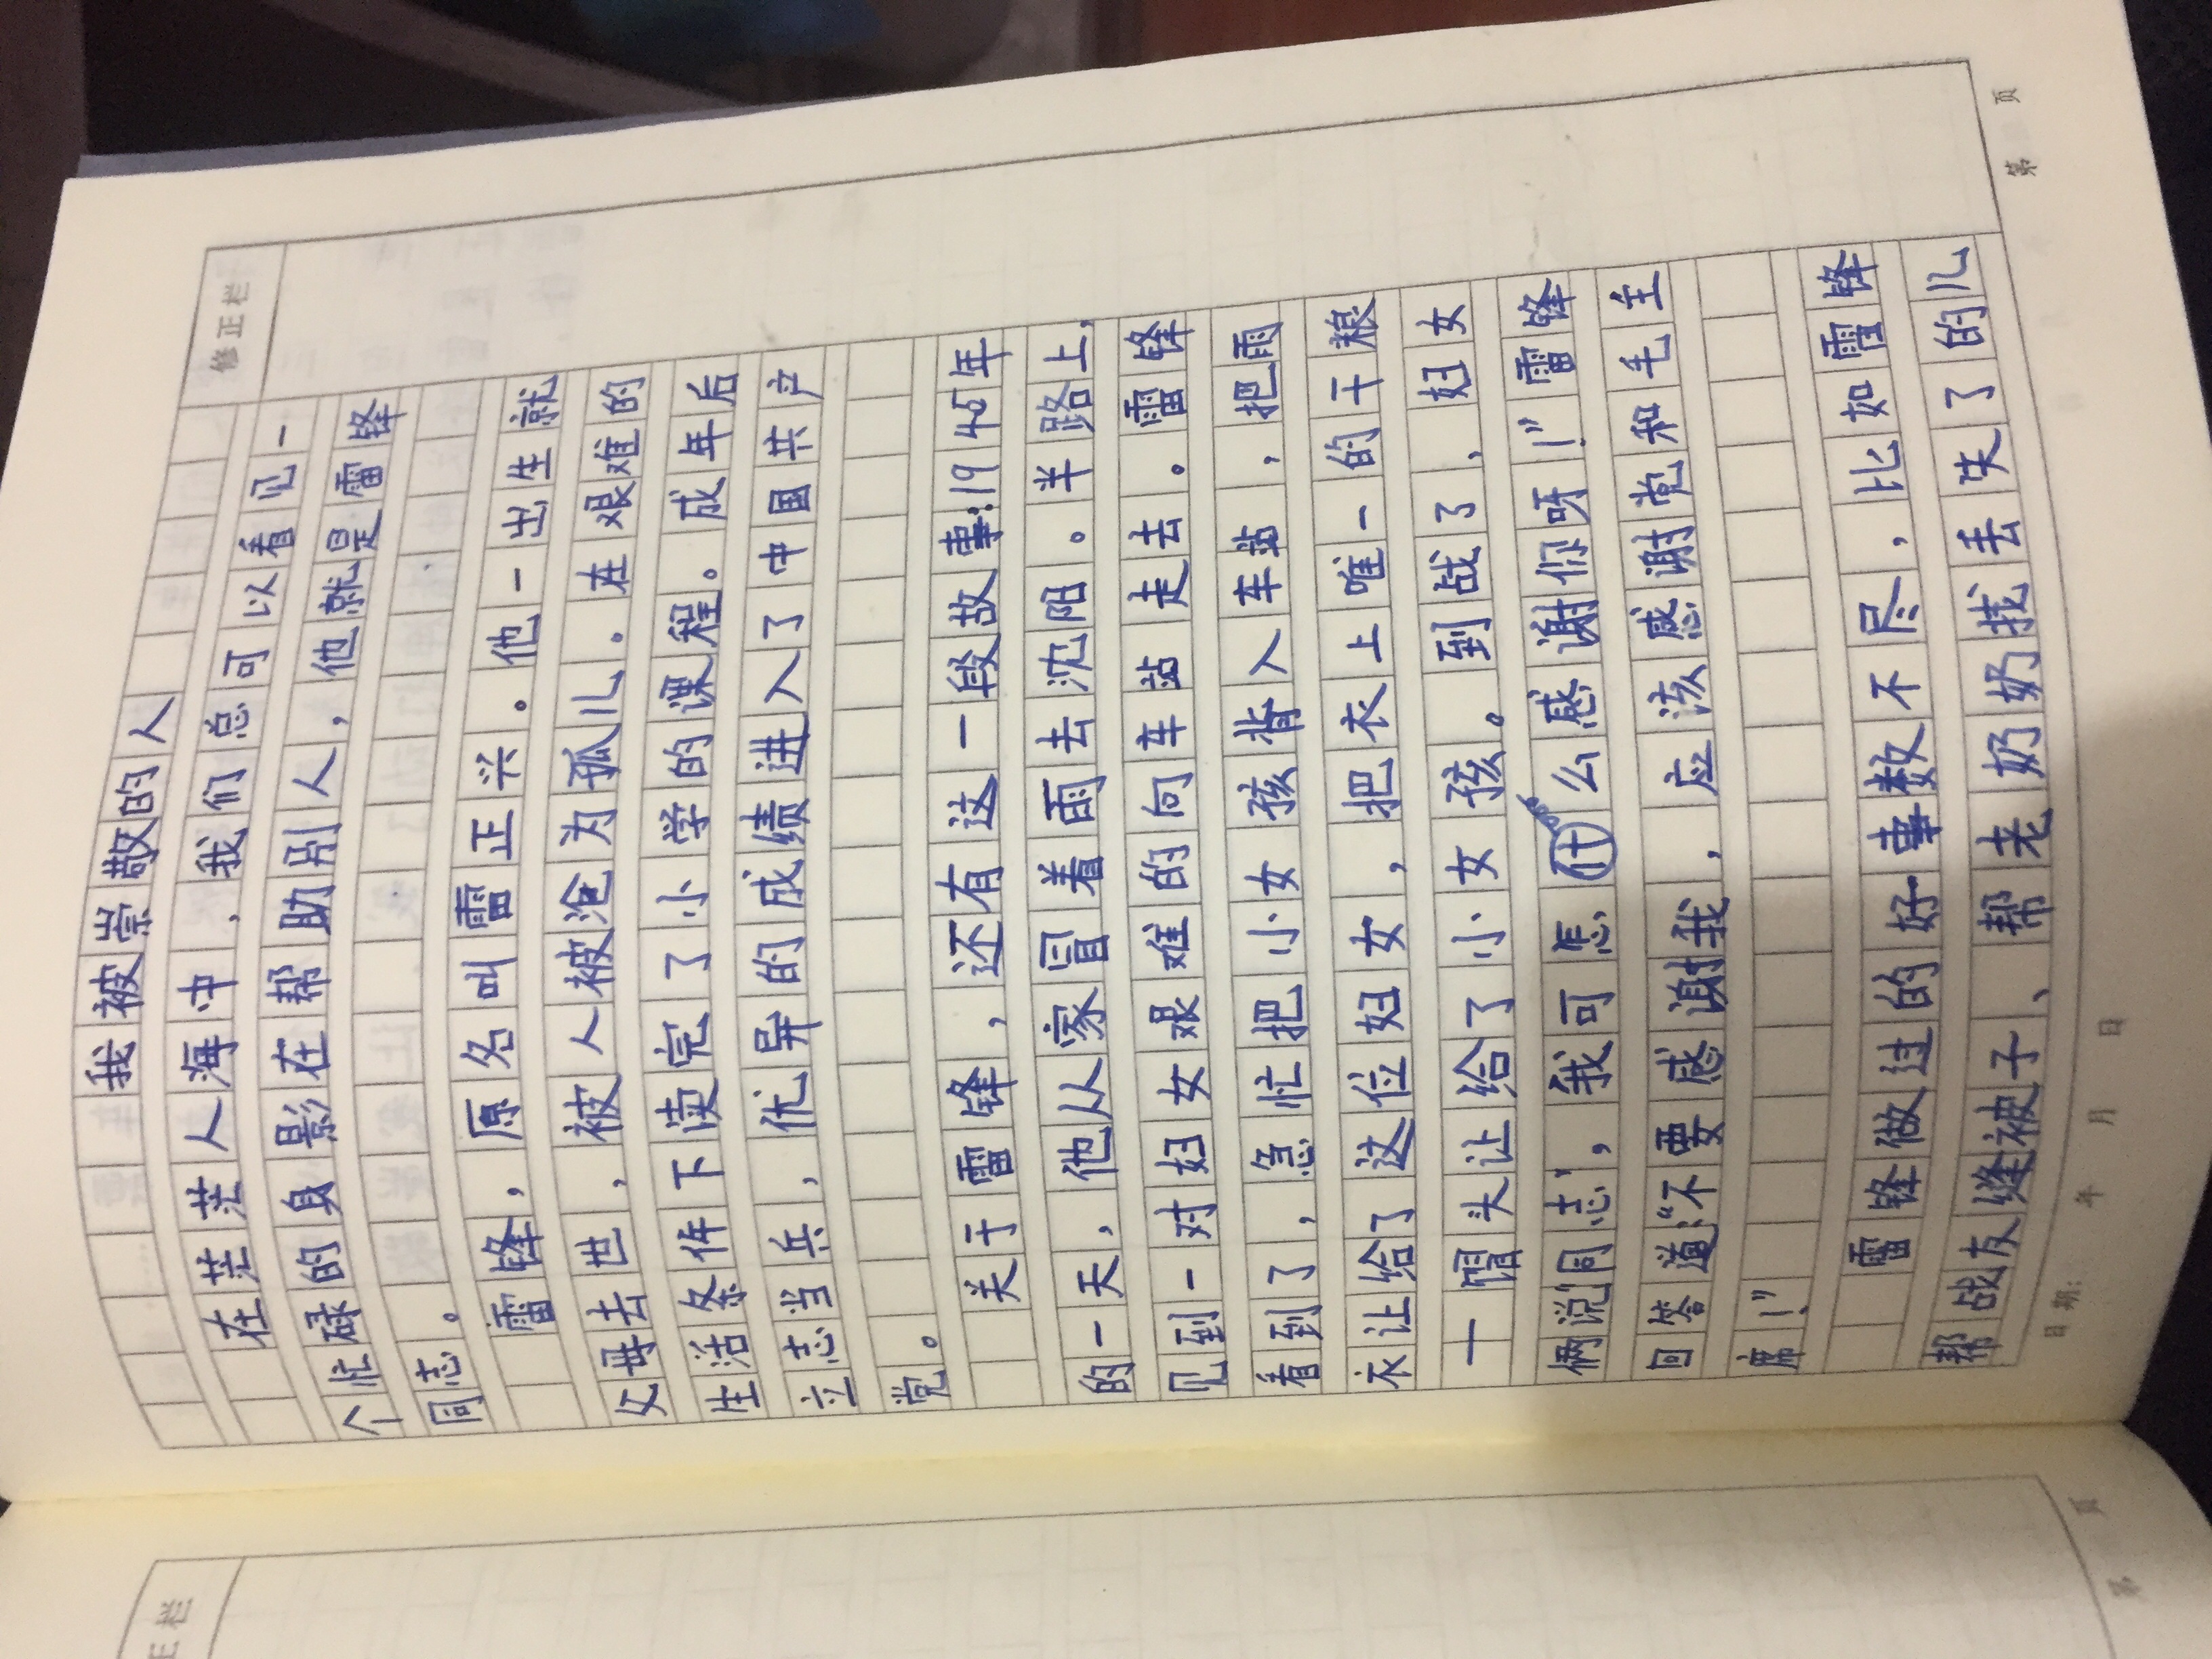 修正栏
我被崇敬的人
在茫茫人海中，我们总可以看见一
个忙碌的身影在帮助别人，他就是雷锋
同志。
雷锋，原名叫雷正兴。他一出生就
父母去世，被人被沧为孤儿。在艰难的
生活条件下读完了小学的课程。成年后
立志当兵，优异的成绩进入了中国共产
党。
关于雷锋，还有这一段故事：1945年
的一天，他从家冒着雨去沈阳。半路上，
见到一对妇女艰难的向车站走去。雷锋
看到了，急忙把小女孩背入车站，把雨
衣让给了这位妇女，把衣上唯一的干粮
一馒头让给了小女孩。到战了，妇女
俩说“同志”，我可怎什么感谢你呀！”雷锋
回答道：“不要感谢我，应该感谢党和毛主
席！”
雷锋做过的好事数不尽，比如雷锋
帮战友缝被子、帮老奶奶找丢失了的儿
日期： 年 月 日
第 页
正栏
第 页